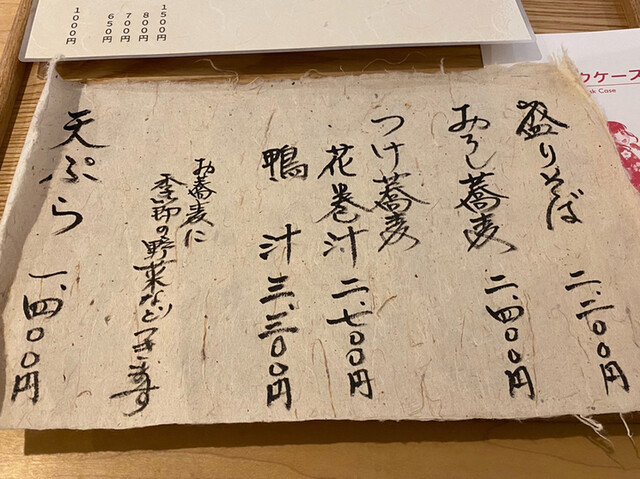 盛りそば 二、二〇〇円
おろし蕎麦 二、四〇〇円
つけ蕎麦
花巻汁 二、七〇〇円
鴨 汁 三、三〇〇円
お蕎麦に
季節の野菜などつきます
天ぷら 一、四〇〇円
1500円
800円
700円
650円
1000円
クケース
sk Case